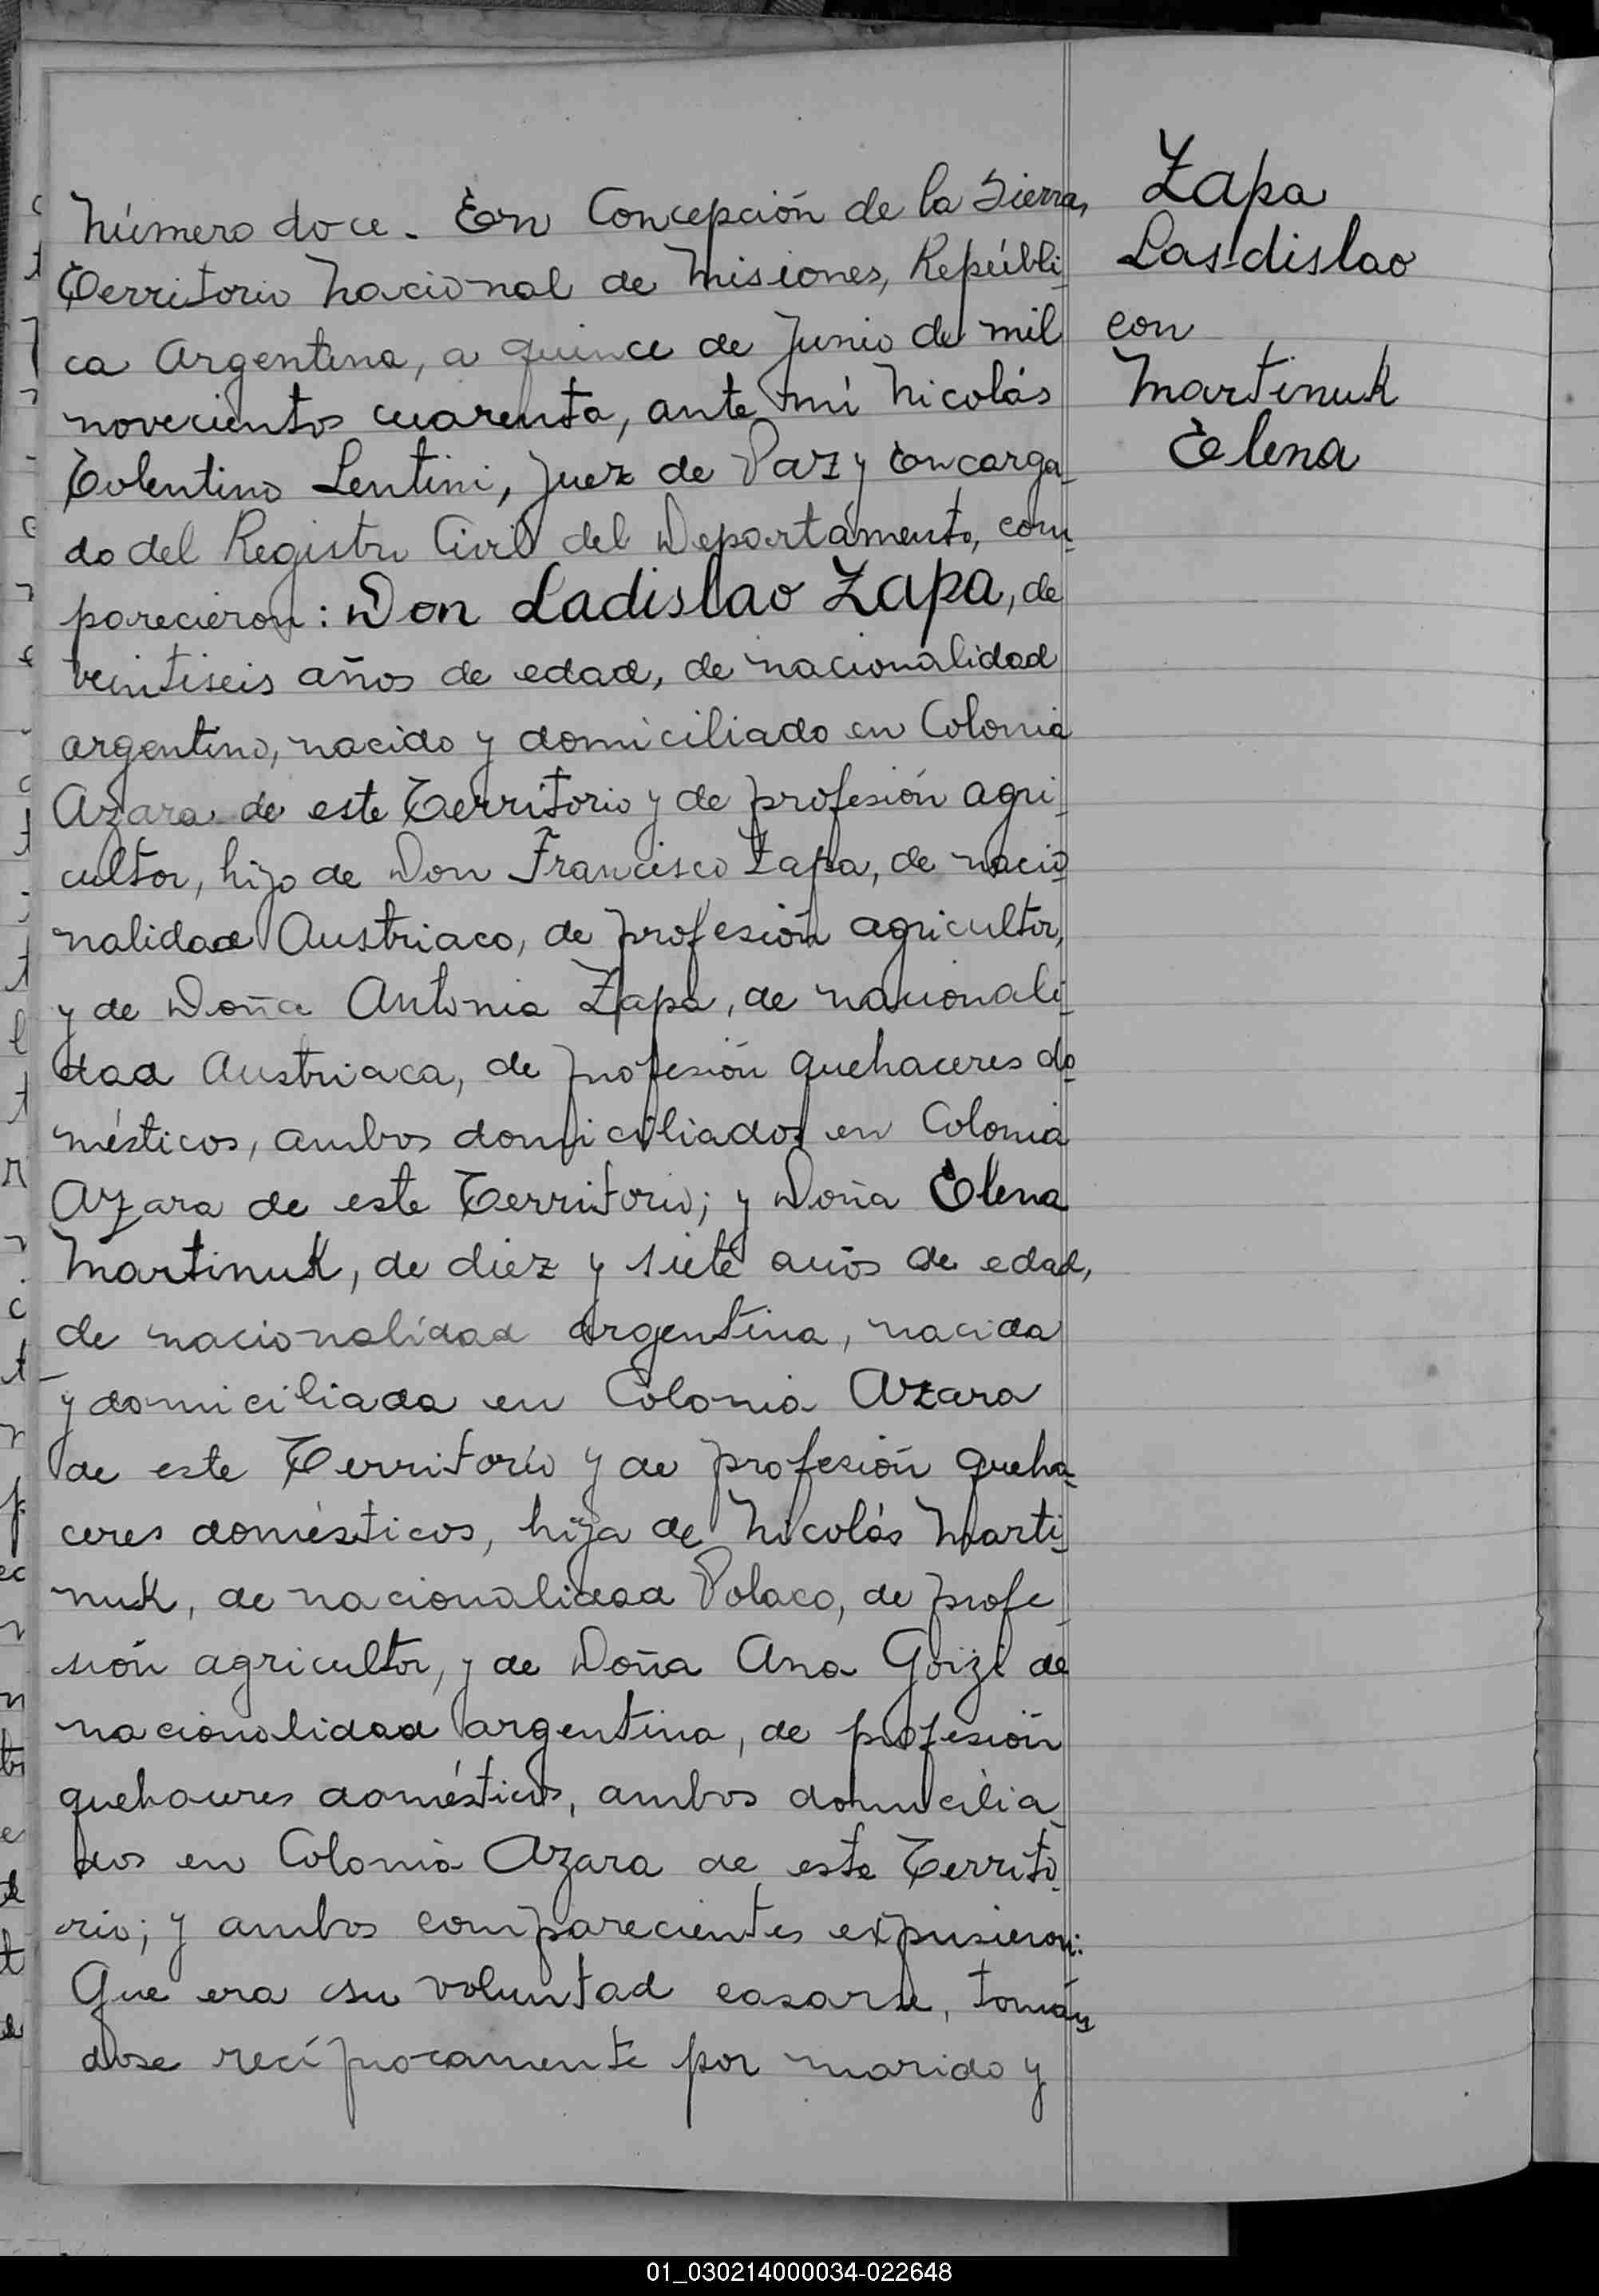 Número doce. En Concepción de la Sierra,
Territorio Nacional de Misiones, Repúbli-
ca Argentina, a quince de Junio de mil
novecientos cuarenta, ante mí Nicolás
Tolentino Lentini, Juez de Paz y Encarga-
do del Registro Civil del Departamento, com-
parecieron: Don Ladislao Zapa, de
veintiseis años de edad, de nacionalidad
argentino, nacido y domiciliado en Colonia
Azara de este Territorio y de profesión agri-
cultor, hijo de Don Francisco Zapa, de nacio-
nalidad Austriaco, de profesión agricultor,
y de Doña Antonia Zapa, de nacionali-
dad Austriaca, de profesión quehaceres do-
mésticos, ambos domiciliados en Colonia
Azara de este Territorio; y Doña Elena
Martinuk, de diez y siete años de edad,
de nacionalidad Argentina, nacida
y domiciliada en Colonia Azara
de este Territorio y de profesión queha-
ceres domésticos, hija de Nicolás Marti-
nuk, de nacionalidad Polaco, de profe-
sión agricultor, y de Doña Ana Goizi de
nacionalidad argentina, de profesión
quehaceres domésticos, ambos domicilia-
dos en Colonia Azara de este Territo-
rio; y ambos comparecientes expusieron:
Que era su voluntad casarse, tomán-
dose recíprocamente por marido y
Zapa
Las-dislao
con
Martinuk
Elena
01_030214000034-022648